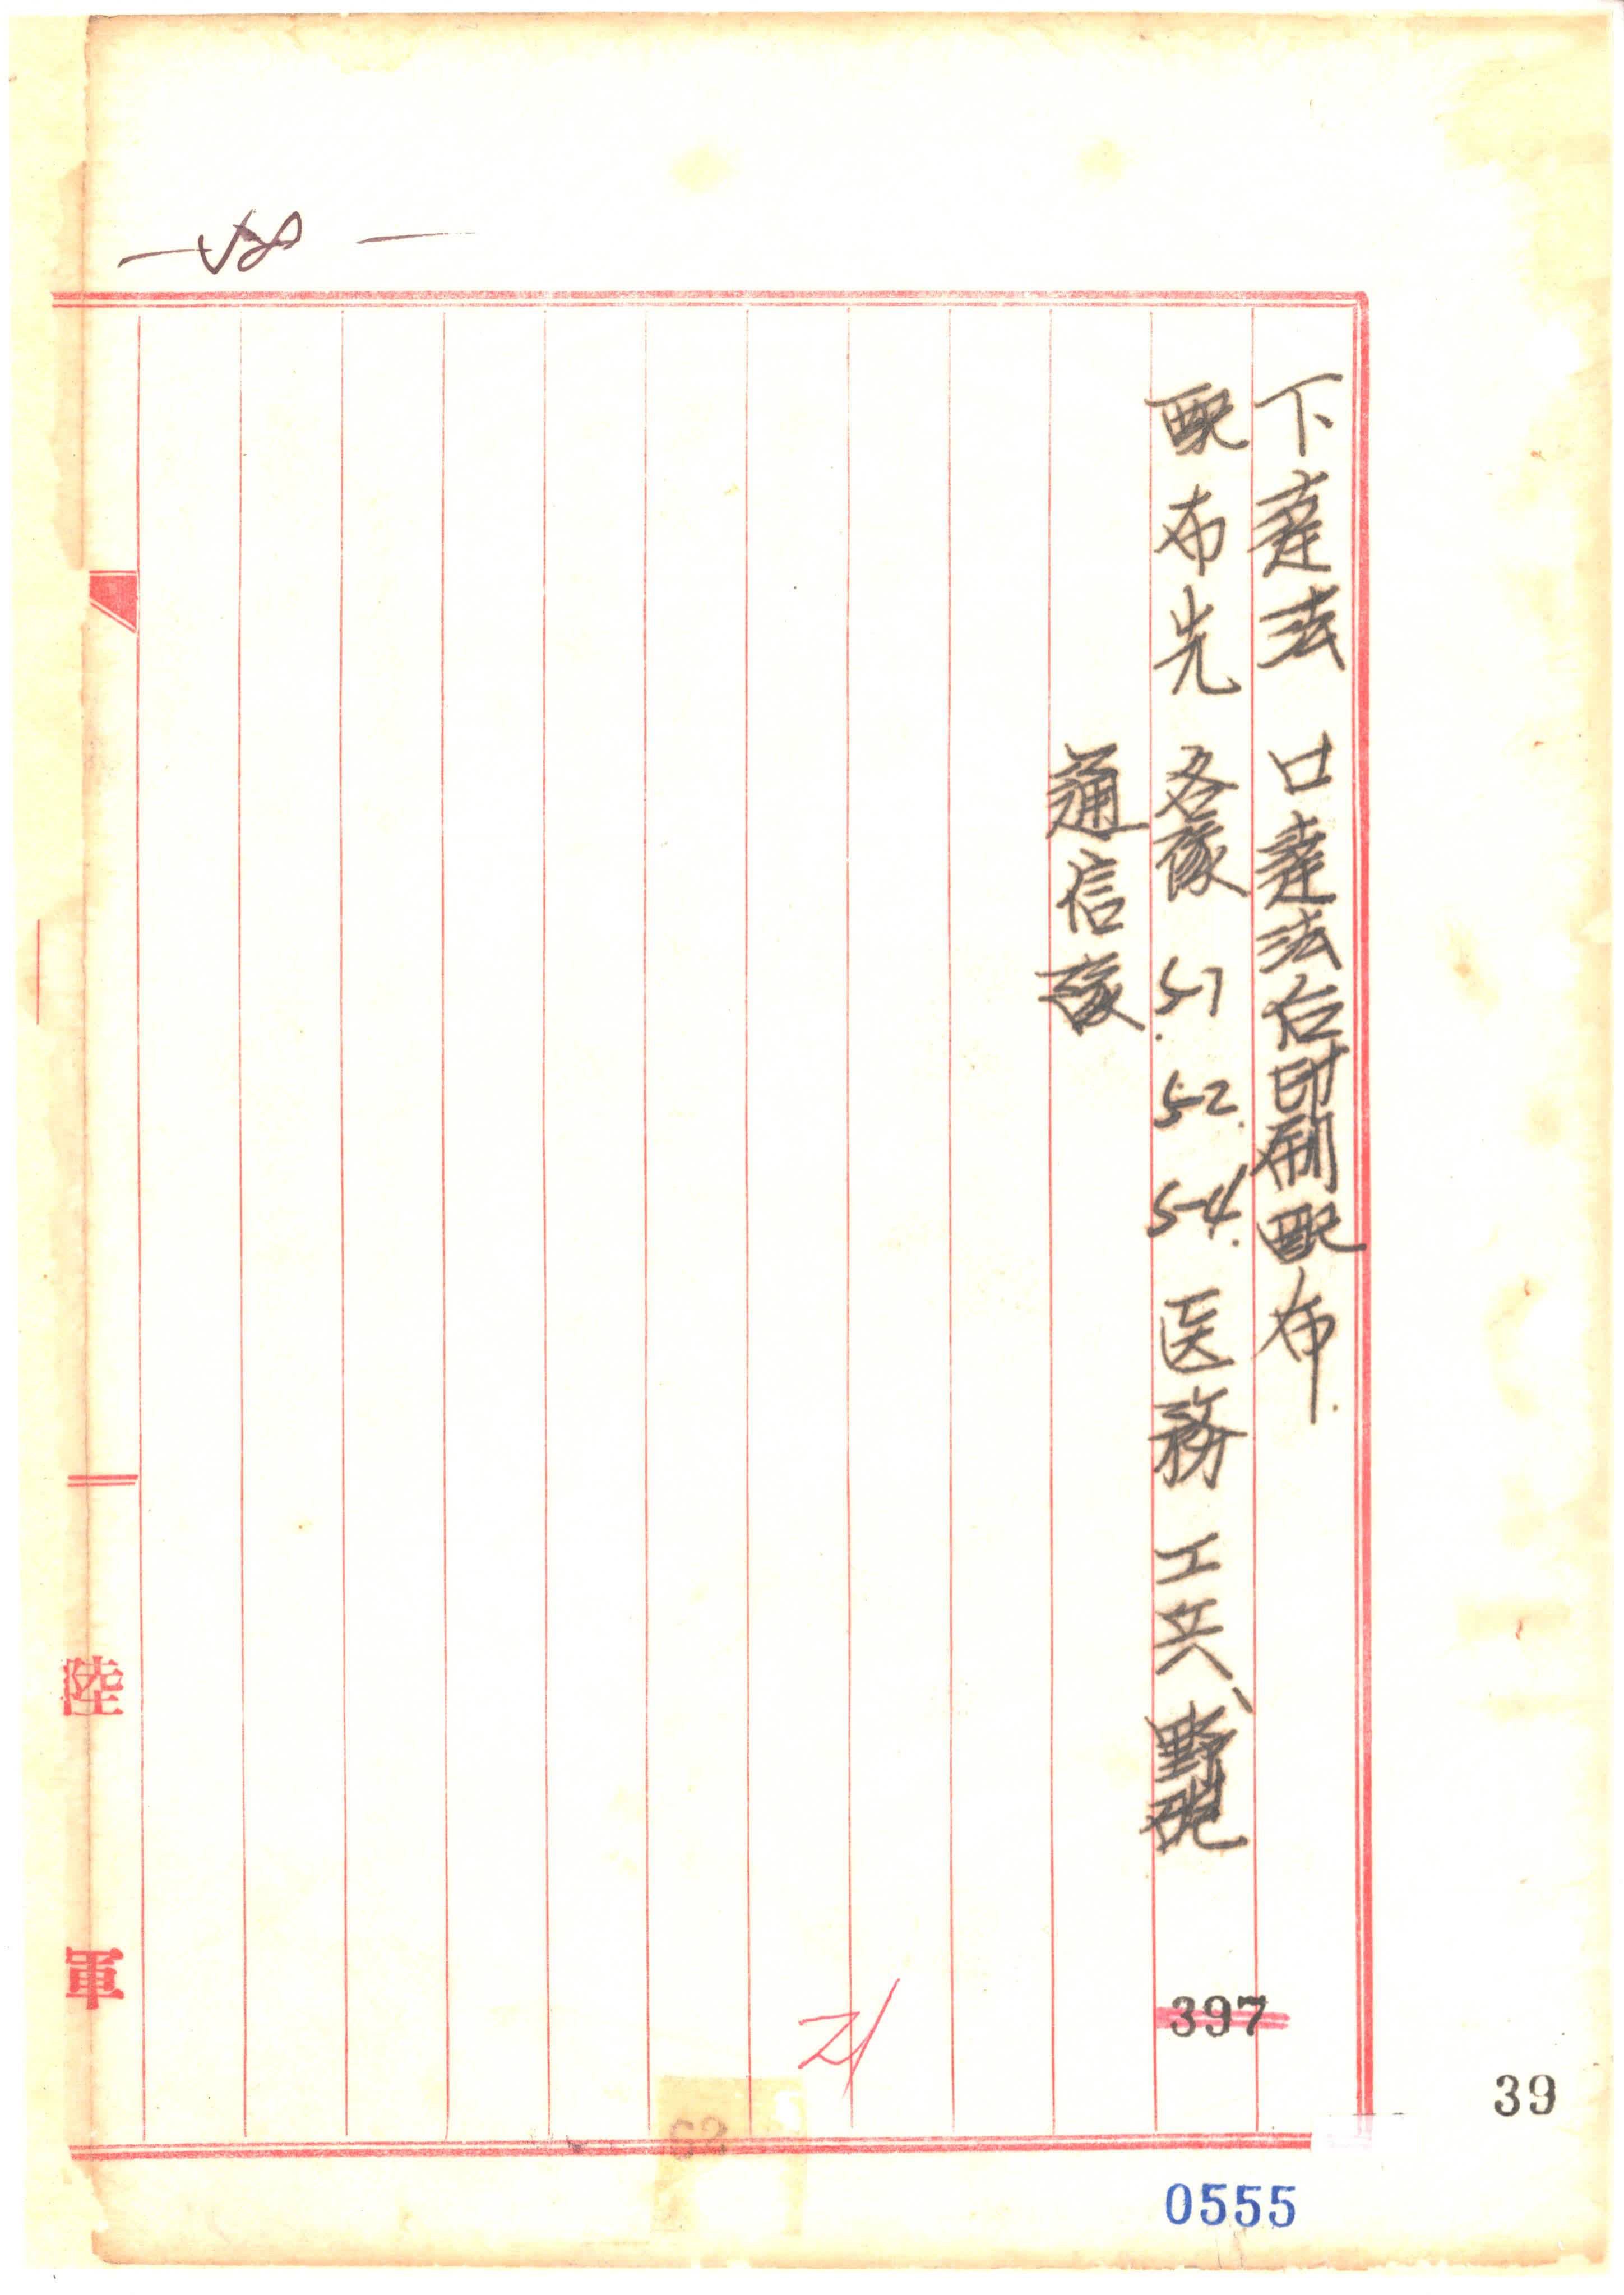 —58—
下達法 口達法后印刷配布.
配布先 各隊 S-1. S-2. S-4. 医務 工兵、野砲
通信隊
陸軍
397
21
39
0555